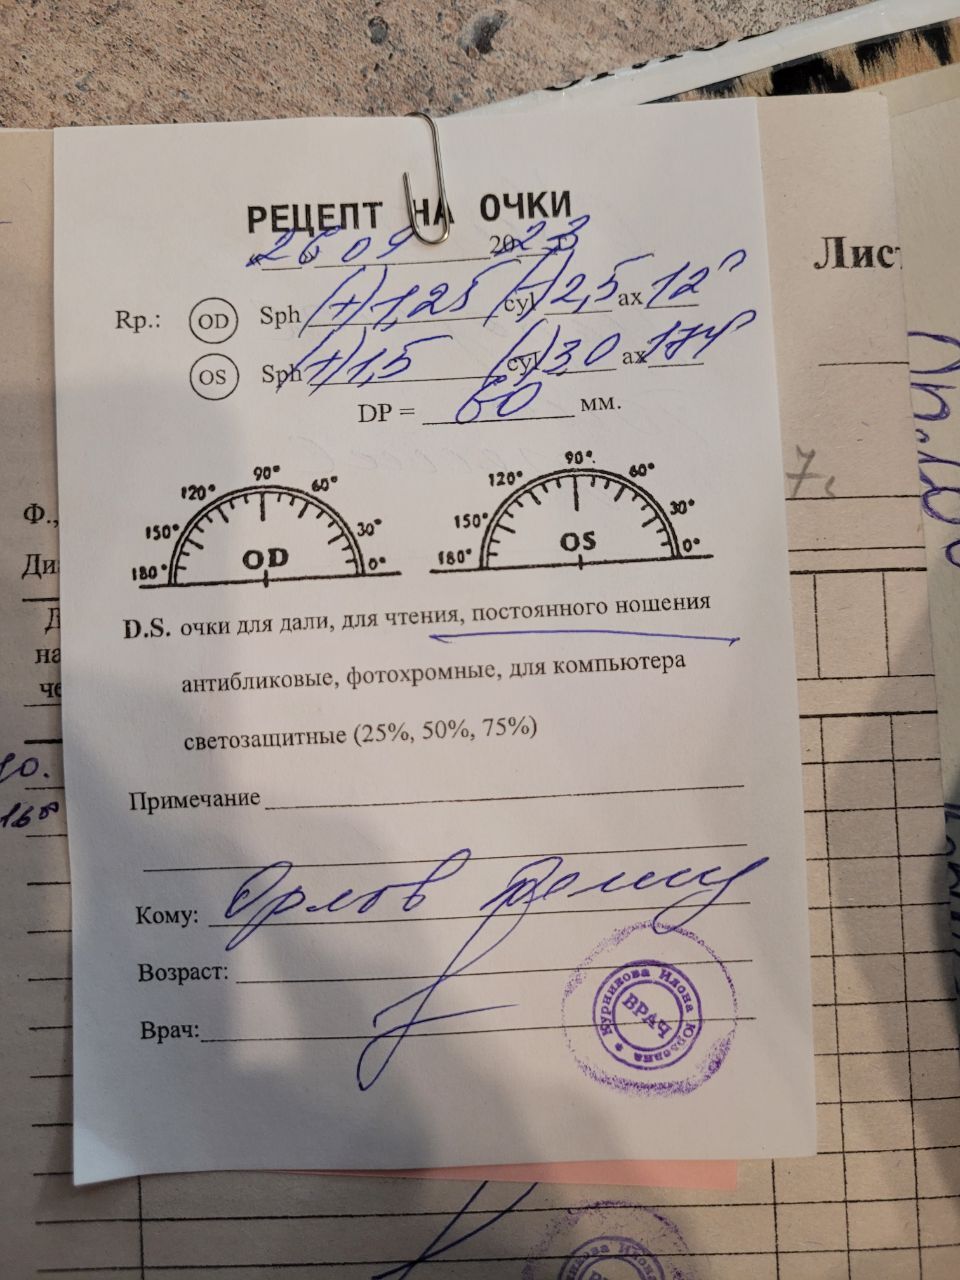 РЕЦЕПТ НА ОЧКИ
«26» 09 2023 г.
Rp.: OD Sph (+)1,25 cyl (-)2,5 ax 12°
OS Sph (+)1,5 cyl (-)3,0 ax 174°
DP = 60 мм.
180° 150° 120° 90° 60° 30° 0°
OD
180° 150° 120° 90° 60° 30° 0°
OS
D.S. очки для дали, для чтения, постоянного ношения
антибликовые, фотохромные, для компьютера
светозащитные (25%, 50%, 75%)
Примечание
Кому: Орлов
Возраст:
Врач:
Курникова Илона Юрьевна
ВРАЧ
Лист
Ф.,
Ди
Д
на
че
7